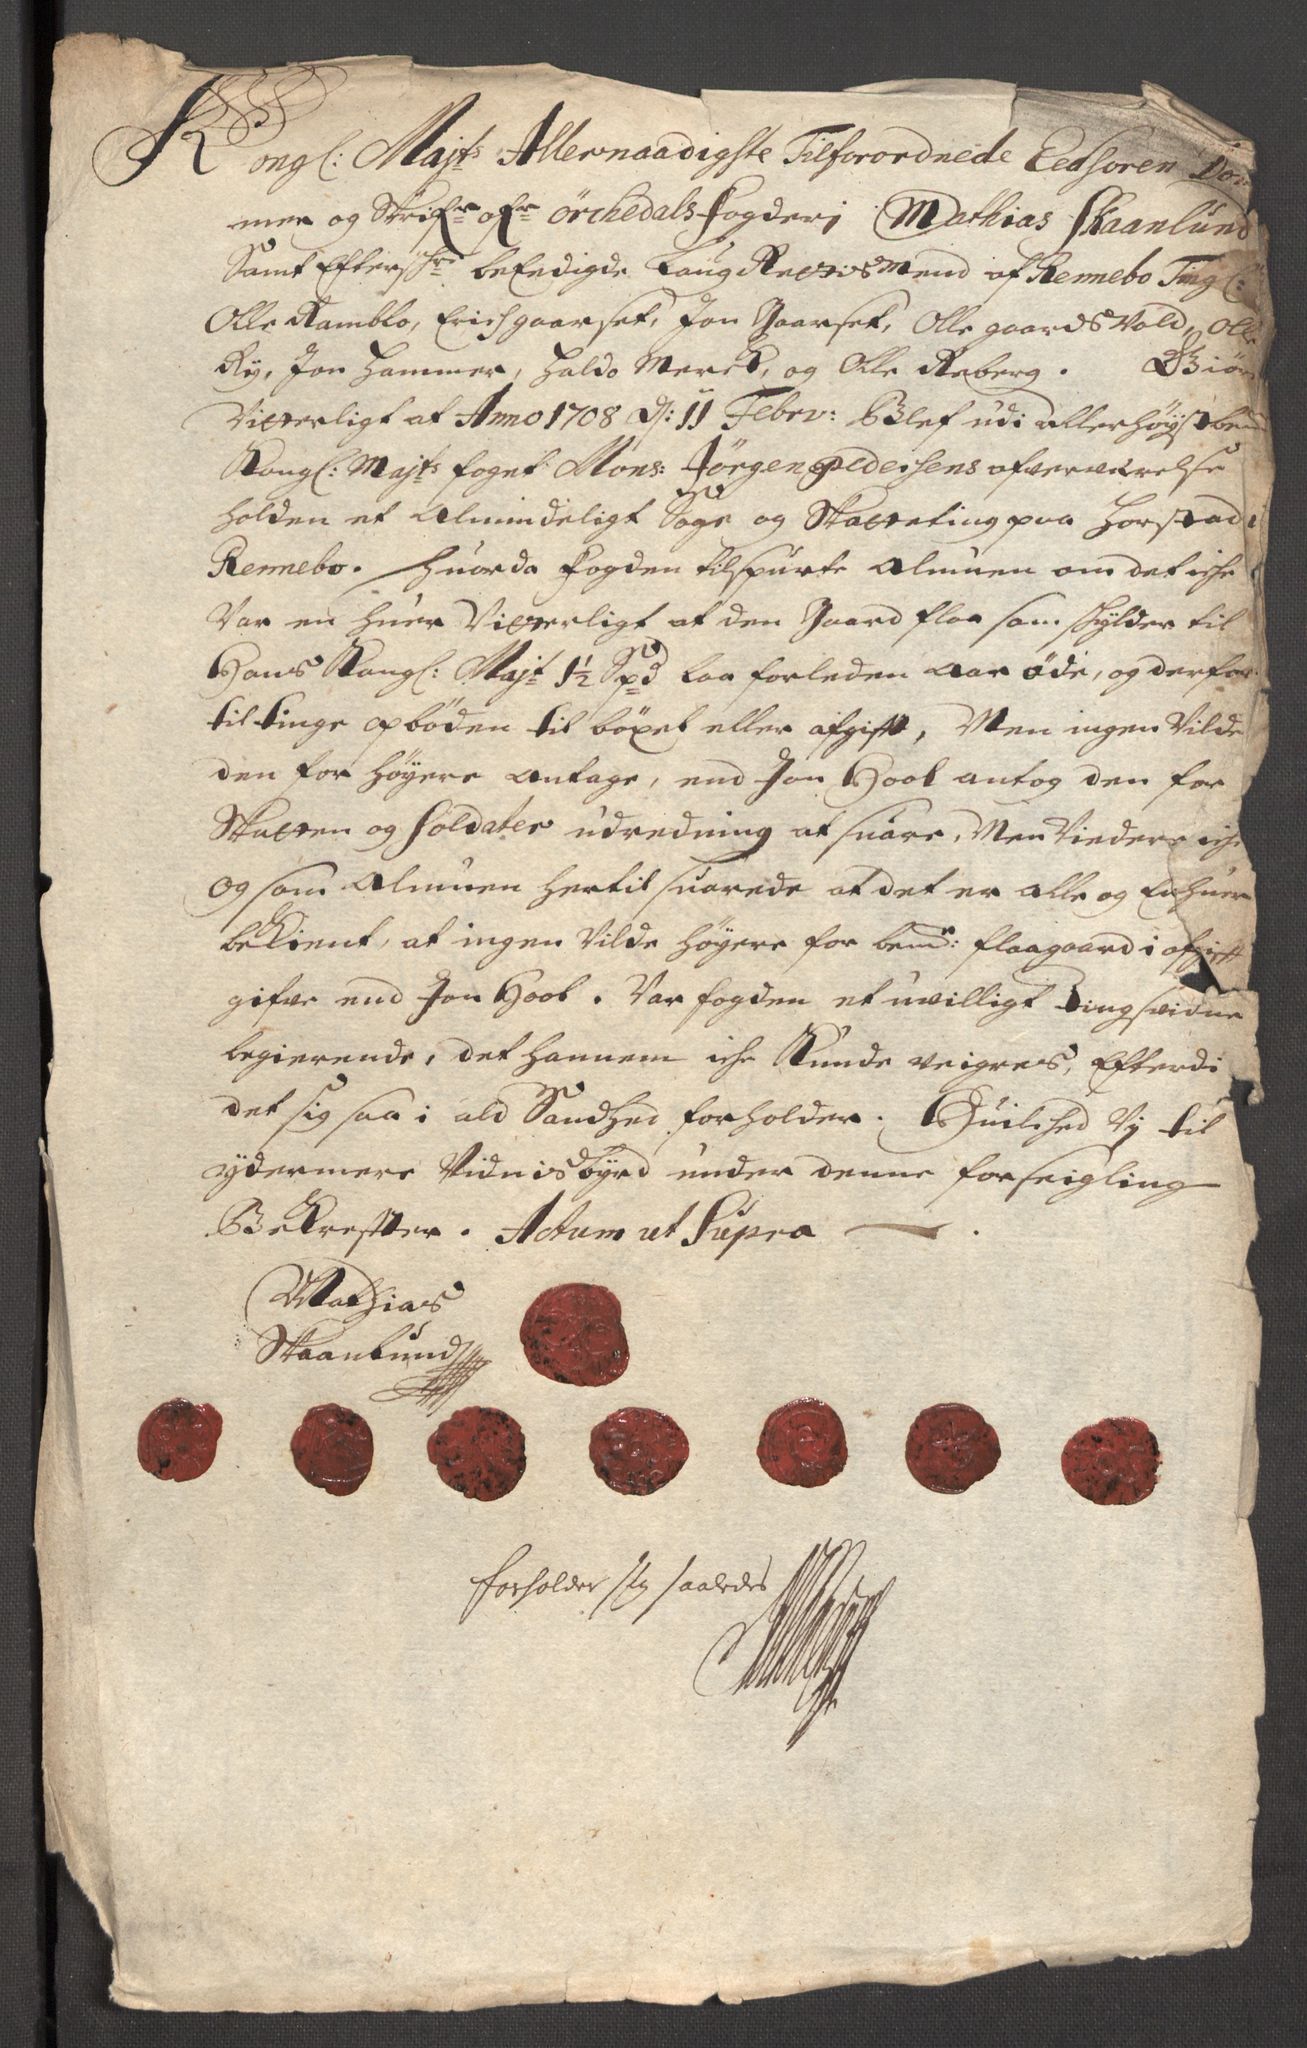 Kongl: Majts Allernaadigste Tilforordnede Eedsoren Dom
mer og Skrifr ofr Örchedals Fogderj Mathias Skaanlund
Samt Efterschr: beEedigde Laug Rettis Mend af Rennebo Tingl:
Olle Ramblo, Erich gaarset, Jon Gaarset, Olle gaards Vold, Olle
Ry, Jon Hammer, Haldo Merch, og Olle Reberg. Giör
Vitterligt at Anno 1708 d: 11 Febrv: Blef udi allerhøystbemt
Kongl: Majts foget Mons: Jørgen Pedersens ofververelse
holden et Almindeligt Sage og Skatteting paa Horstad i
Rennebo. Huorda Fogden tilspurte Almuen om det iche
Var en huer Vitterligt at den Gaard flaa som skylder til
Hans Kongl: Majt 1½ Spd laa forleden aar øde, og derfor
til tinge opbøden til böxel eller afgift, Men ingen Vilde
den for høyere antage, end Jon Hool antog den for
Skatten og Soldater udredning at suare, Men Viedere iche
og som Almuen hertil suarede at det er alle og Enhuer
beKient, at ingen Vilde høyere for bemte: flaagaard i afgift
gifve end Jon Hool. Var fogden et uvilligt tingsvidne
begierende, det hannem iche Kunde veigres, Efterdi
det sig saa i ald Sandhed forholder. Huilched Vj til
ydermere Vidnisbyrd under denne forseigling
BeKrefter. Actum ut Supra
Mathias
Skaanlund
forholder sig saaledes